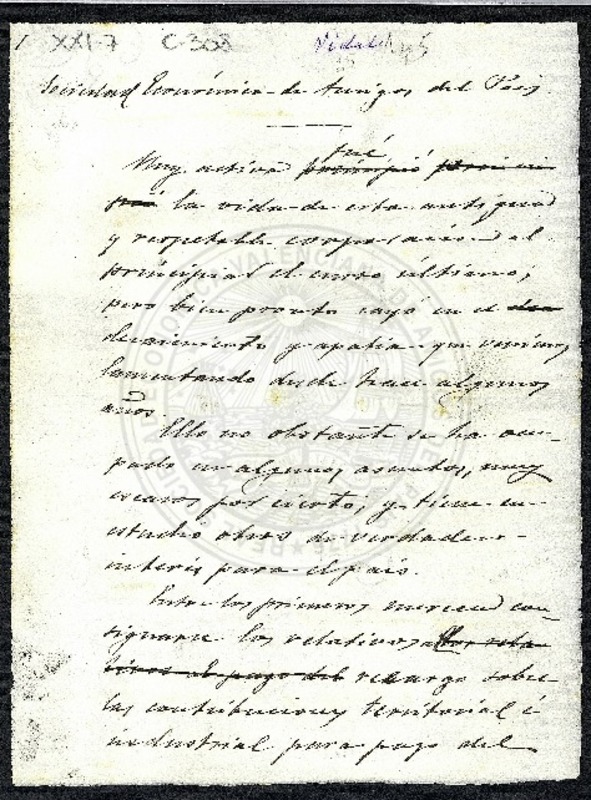 XXI-7 C-308 Vidal
Sociedad Económica de Amigos del Pais
Muy activa fué principió
la vida de esta antigua
y respetable corporación al
principiar el curso último;
pero bien pronto cayó en el
decaimiento y apatia que venimos
lamentando desde hace algunos
años.
Ello no obstante se ha ocu-
pado en algunos asuntos, muy
escasos por cierto; y tiene en
estudio otros de verdadero
interés para el pais.
Entre los primeros merecen con-
signarse los relativos al pago del recargo sobre
las contribuciones territorial é
industrial para pago del
REAL SOCIEDAD ECONOMICA VALENCIANA DE AMIGOS DEL PAIS